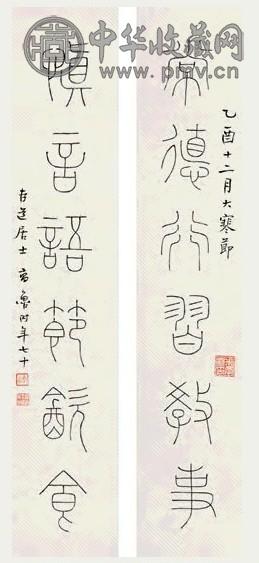 中华收藏网
www.pmv.cn
乙酉十二月大寒節
常德行習教事
慎言語節飲食
居士 魯时年七十